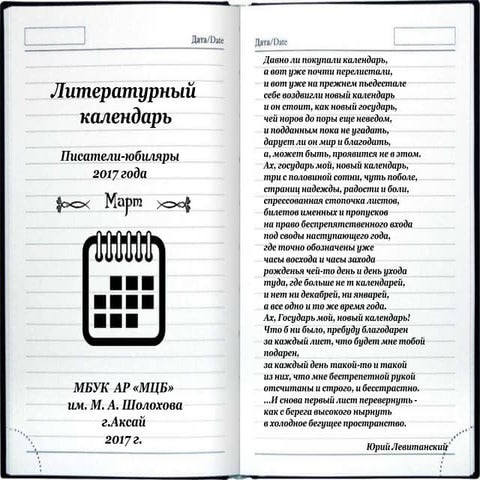 Дата/Date
Литературный
календарь
Писатели-юбиляры
2017 года
Март
МБУК АР «МЦБ»
им. М. А. Шолохова
г.Аксай
2017 г.
Дата/Date
Давно ли покупали календарь,
а вот уже почти перелистали,
и вот уже на прежнем пьедестале
себе воздвигли новый календарь
и он стоит, как новый государь,
чей норов до поры еще неведом,
и подданным пока не угадать,
дарует ли он мир и благодать,
а, может быть, проявится не в этом.
Ах, государь мой, новый календарь,
три с половиной сотни, чуть поболе,
страниц надежды, радости и боли,
спрессованная стопочка листов,
билетов именных и пропусков
на право беспрепятственного входа
под своды наступающего года,
где точно обозначены уже
часы восхода и часы захода
рожденья чей-то день и день ухода
туда, где больше не т календарей,
и нет ни декабрей, ни январей,
а все одно и то же время года.
Ах, Государь мой, новый календарь!
Что б ни было, пребуду благодарен
за каждый лист, что будет мне тобой
подарен,
за каждый день такой-то и такой
из них, что мне бестрепетной рукой
отсчитаны и строго, и бесстрастно.
...И снова первый лист перевернуть -
как с берега высокого нырнуть
в холодное бегущее пространство.
Юрий Левитанский